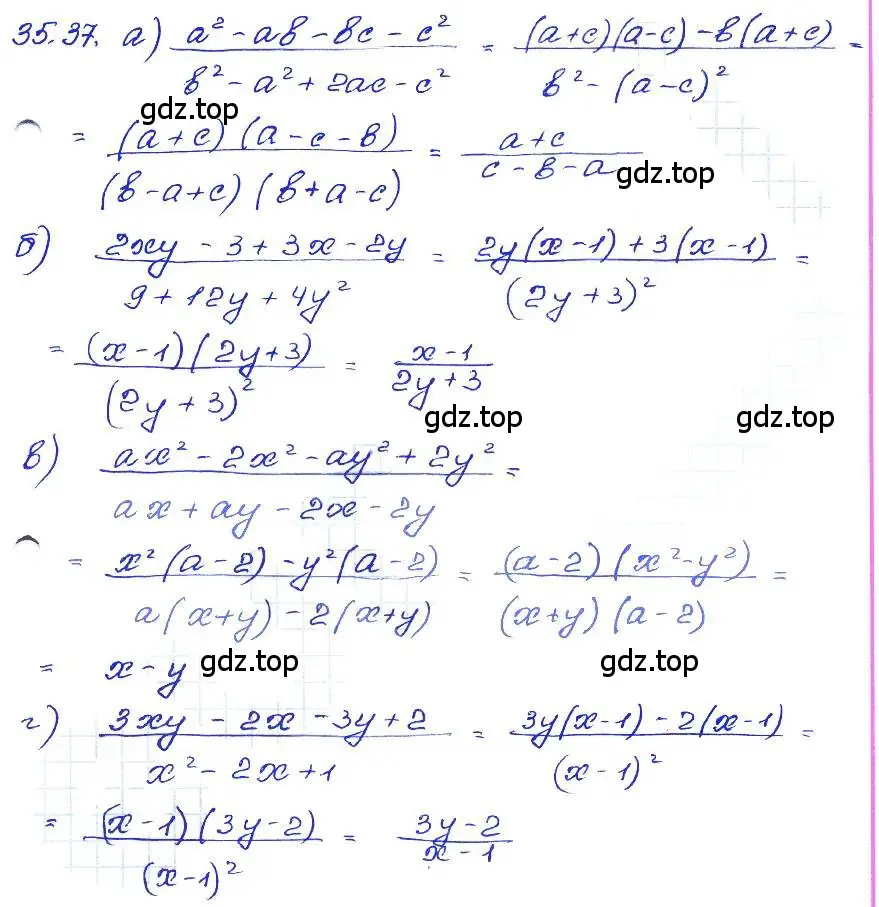 35.37. а) (a² - ab - bc - c²)/(b² - a² + 2ac - c²) = ((a+c)(a-c) - b(a+c))/(b² - (a-c)²) =
gdz.top
= ((a+c)(a-c-b))/((b-a+c)(b+a-c)) = (a+c)/(c-b-a)
gdz.top
б) (2xy - 3 + 3x - 2y)/(9 + 12y + 4y²) = (2y(x-1) + 3(x-1))/((2y+3)²) =
= ((x-1)(2y+3))/((2y+3)²) = (x-1)/(2y+3)
gdz.top gdz.top
в) (ax² - 2x² - ay² + 2y²)/(ax + ay - 2x - 2y) =
= (x²(a-2) - y²(a-2))/(a(x+y) - 2(x+y)) = ((a-2)(x²-y²))/((x+y)(a-2)) =
= x - y
gdz.top gdz.top
г) (3xy - 2x - 3y + 2)/(x² - 2x + 1) = (3y(x-1) - 2(x-1))/((x-1)²) =
= ((x-1)(3y-2))/((x-1)²) = (3y-2)/(x-1)